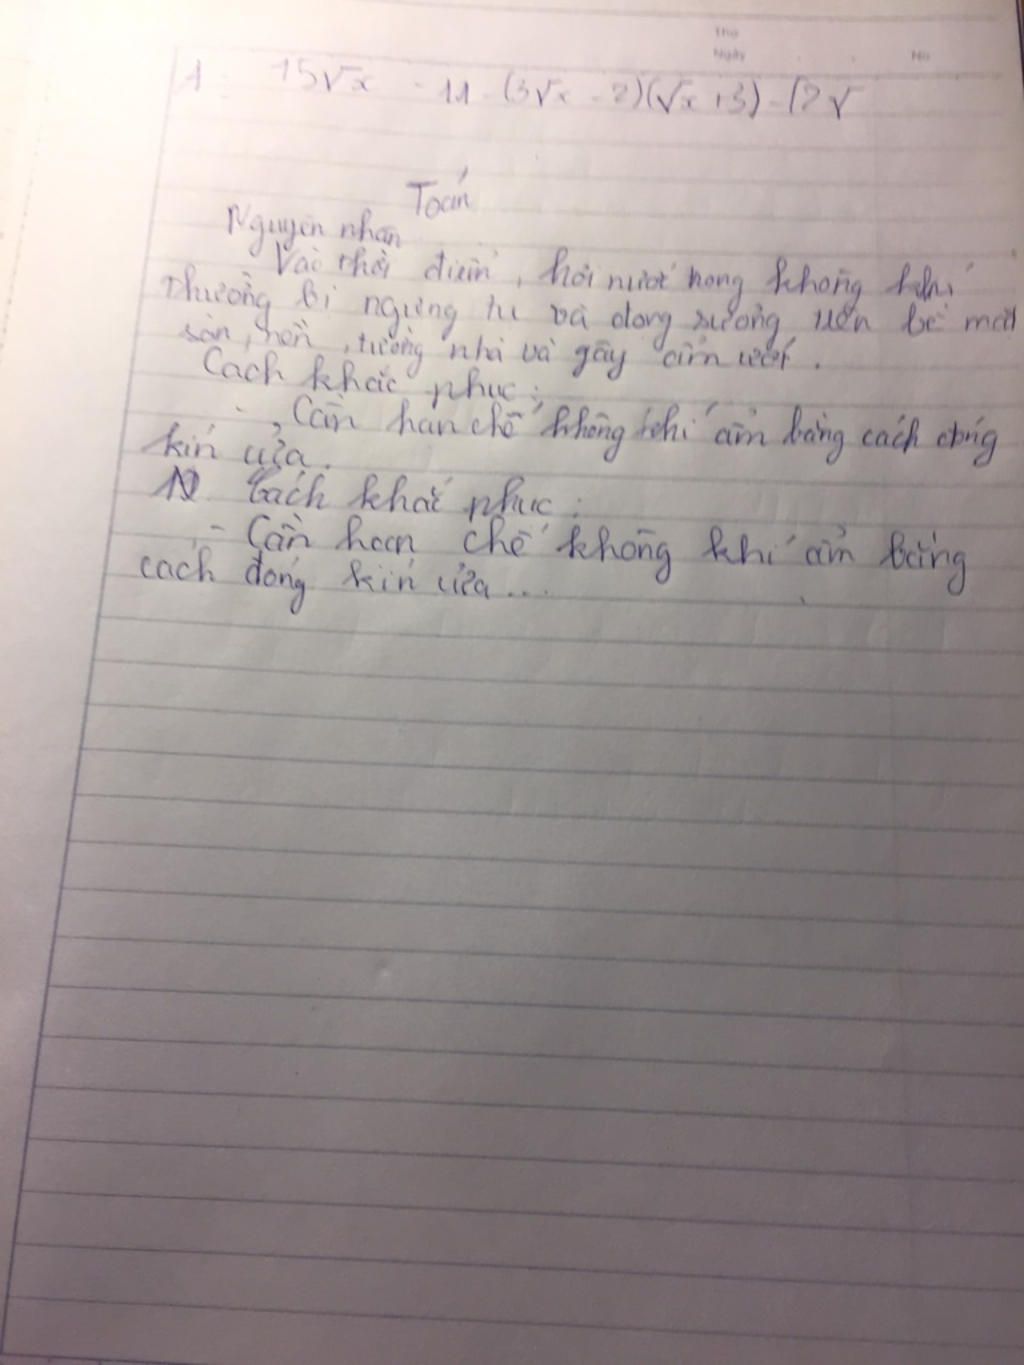 Thứ
Ngày . . No
A = 15√x - 11 - (3√x - 2)(√x + 3) - (2√
Toán
Nguyên nhân
Vào thời điểm, hơi nước trong không khí
thường bị ngưng tụ và đọng sương trên bề mặt
sàn, nền, tường nhà và gây ẩm ướt.
Cách khắc phục:
- Cần hạn chế không khí ẩm bằng cách đóng
kín cửa.
Cách khắc phục:
- Cần hạn chế không khí ẩm bằng
cách đóng kín cửa...